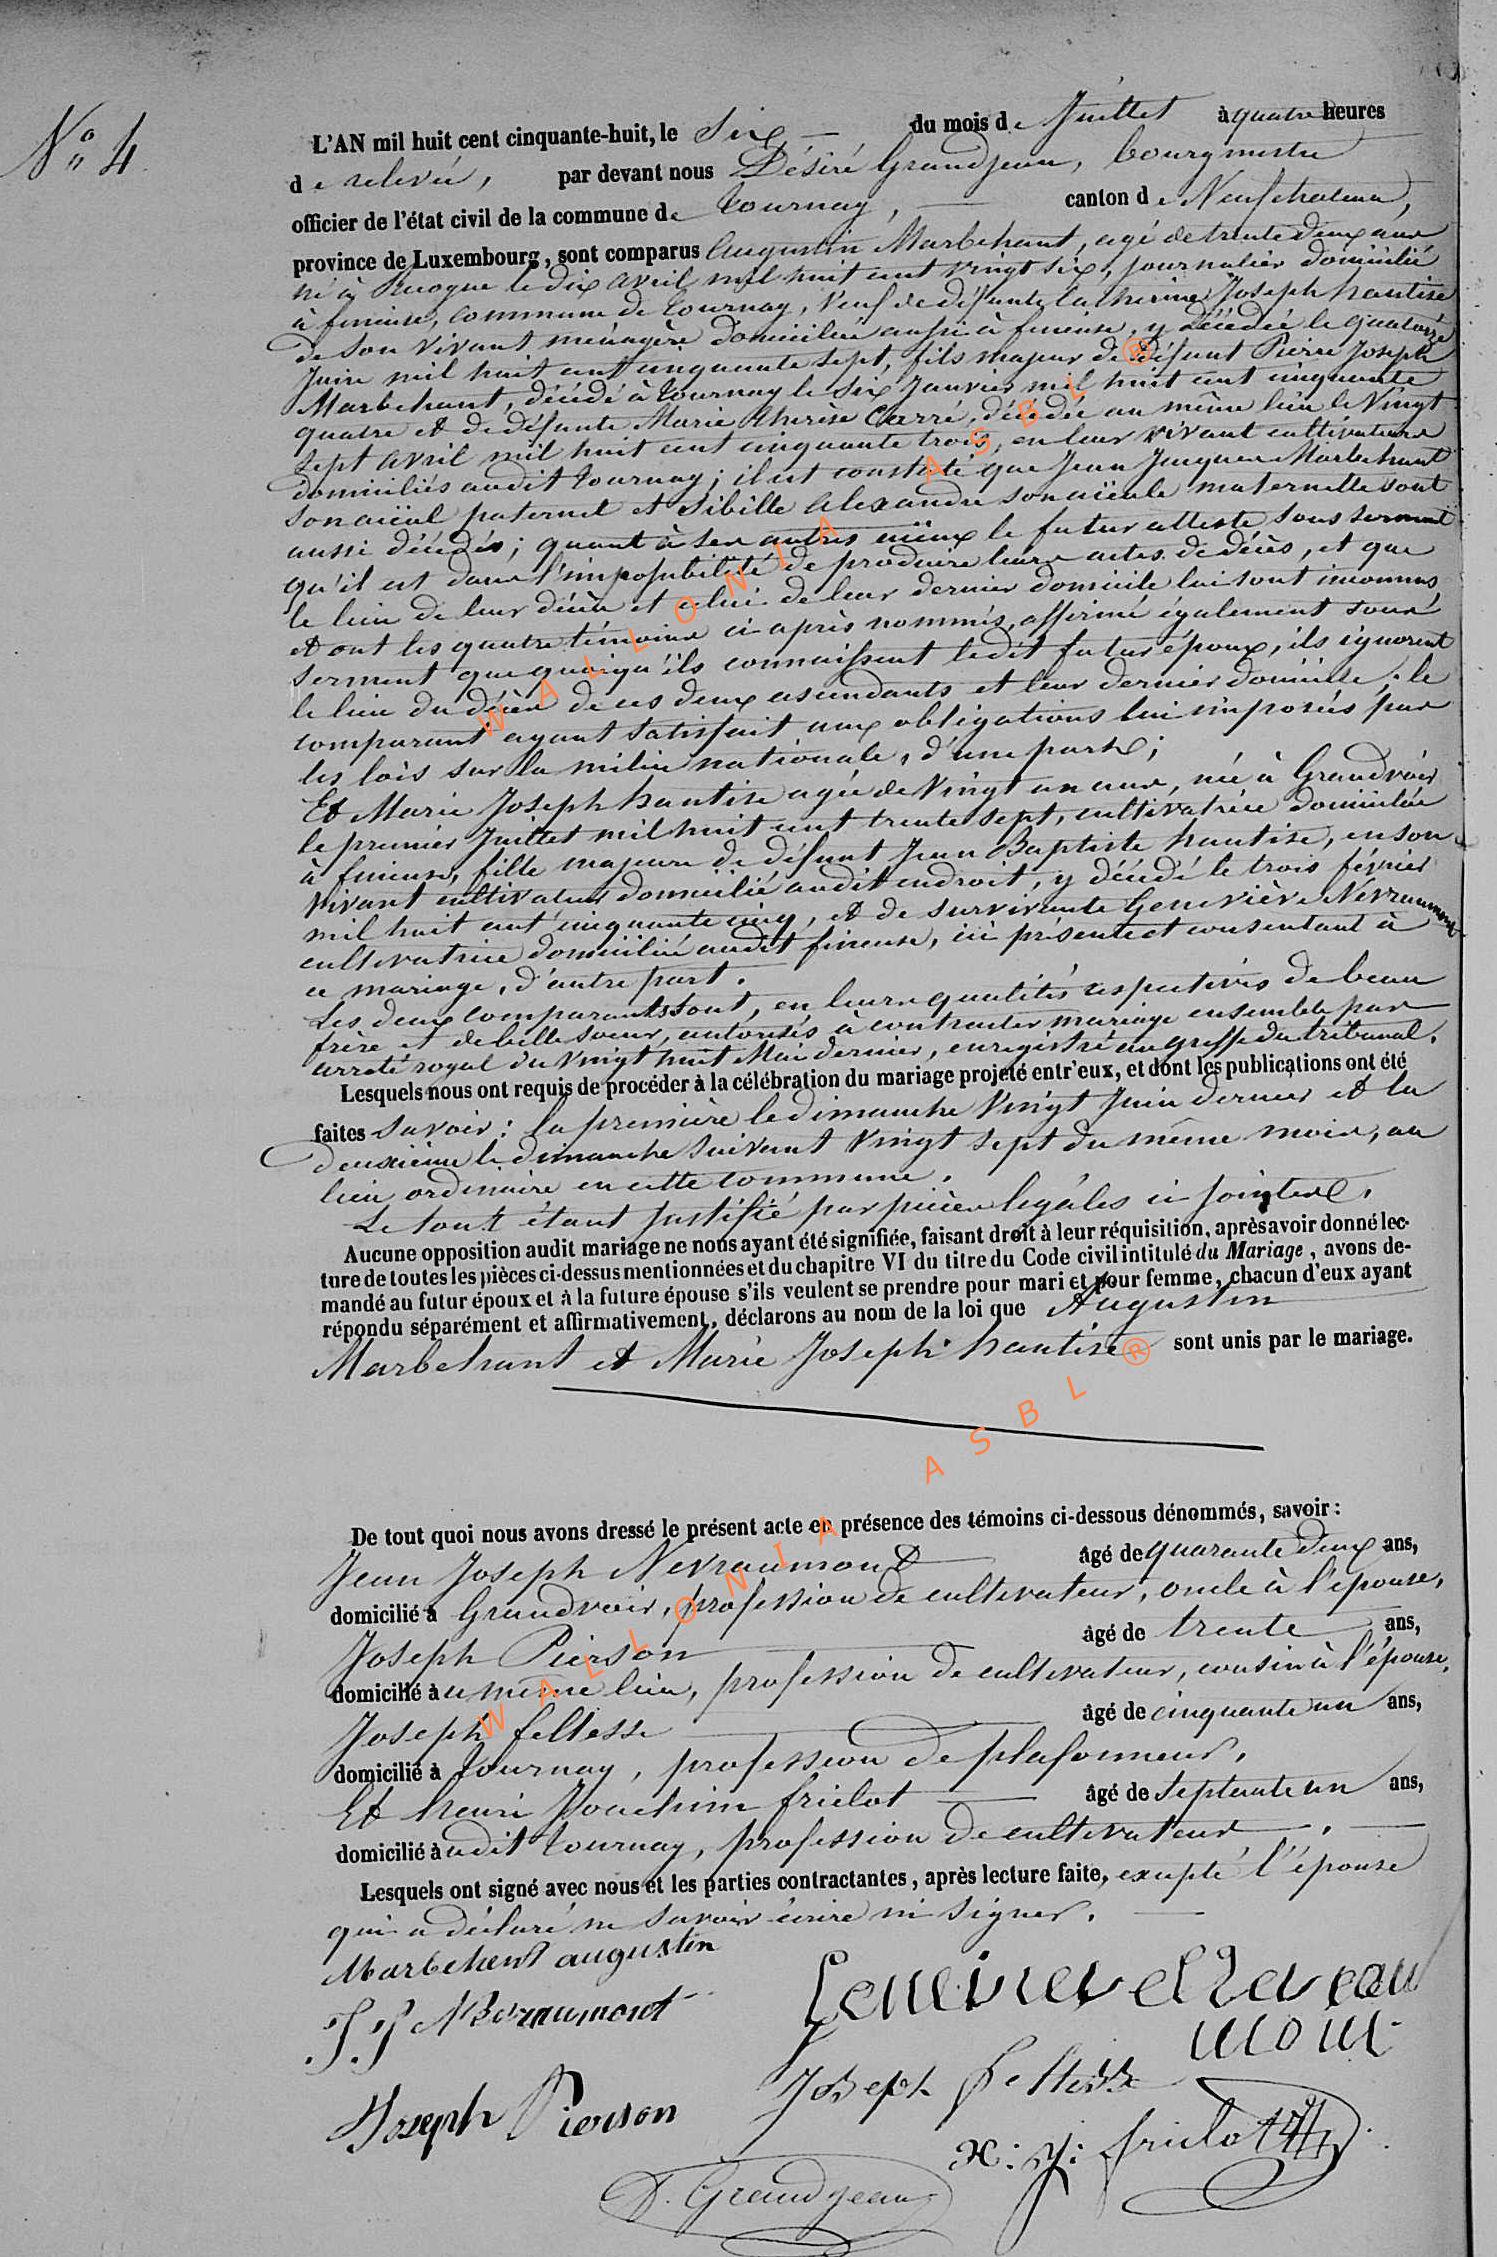 N° 4
L'AN mil huit cent cinquante-huit, le Six du mois de Juillet à quatre heures
de relevée, par devant nous Désiré Grandjean, bourgmestre
officier de l'état civil de la commune de Tournay, canton de Neufchateau,
province de Luxembourg, sont comparus Augustin Marbehant, agé de trente deux ans
né à Recogne le dix avril mil huit cent vingt six, journalier domicilié
à fineuse, commune de Tournay, veuf de défunte Catherine Joseph hautise
de son vivant ménagère domiciliée aussi à fineuse, y décédée le quatorze
Juin mil huit cent cinquante sept, fils majeur de défunt Pierre Joseph
Marbehant, décédé à Tournay le six Janvier mil huit cent cinquante
quatre et de défunte Marie Therèse Carré, décédée au même lieu le vingt
sept avril mil huit cent cinquante trois, en leur vivant cultivateurs
domiciliés audit Tournay; il est constaté que Jean Jacques Marbehant
son aïeul paternel et Sibille Alexandre son aïeule maternelle sont
aussi décédés; quant à ses autres aïeux le futur atteste sous serment
qu'il est dans l'impossibilité de produire leurs actes de décès, et que
le lieu de leur décès et celui de leur dernier domicile lui sont inconnus
et ont les quatre témoins ci-après nommés, affirmé également sous
serment que quoiqu'ils connaissent ledit futur époux, ils ignorent
le lieu du décès de ces deux ascendants et leur dernier domicile; le
comparant ayant satisfait aux obligations lui imposées par
les lois sur la milice nationale, d'une part;
Et Marie Joseph hautise agée de vingt un ans, née à Grandvoir
le premier Juillet mil huit cent trente sept, cultivatrice domiciliée
à fineuse, fille majeure de défunt Jean Baptiste hautise, en son
vivant cultivateur domicilié audit endroit, y décédé le trois février
mil huit cent cinquante cinq, et de survivante Geneviève Nevraumont
cultivatrice domiciliée audit fineuse, ici présente et consentant à
ce mariage, d'autre part.
Les deux comparants sont, en leurs qualités respectives de beau
frère et de belle soeur, autorisés à contracter mariage ensemble par
arrêté royal du vingt huit Mai dernier, enregistré au greffe du tribunal.
Lesquels nous ont requis de procéder à la célébration du mariage projeté entr'eux, et dont les publications ont été
faites savoir: la première le dimanche vingt Juin dernier et la
deuxième le dimanche suivant vingt sept du même mois, au
lieu ordinaire en cette commune.
Le tout étant justifié par pièces légales ci-jointes.
Aucune opposition audit mariage ne nous ayant été signifiée, faisant droit à leur réquisition, après avoir donné lec-
ture de toutes les pièces ci-dessus mentionnées et du chapitre VI du titre du Code civil intitulé du Mariage, avons de-
mandé au futur époux et à la future épouse s'ils veulent se prendre pour mari et pour femme, chacun d'eux ayant
répondu séparément et affirmativement, déclarons au nom de la loi que Augustin
Marbehant et Marie Joseph hautise sont unis par le mariage.
De tout quoi nous avons dressé le présent acte en présence des témoins ci-dessous dénommés, savoir:
Jean Joseph Nevraumont âgé de quarante deux ans,
domicilié à Grandvoir, profession de cultivateur, oncle à l'épouse,
Joseph Pierson âgé de trente ans,
domicilié au même lieu, profession de cultivateur, cousin à l'épouse,
Joseph fellesse âgé de cinquante un ans,
domicilié à Tournay, profession de plafonneur.
Et henri Joachim frielot âgé de septante un ans,
domicilié audit Tournay, profession de cultivateur.
Lesquels ont signé avec nous et les parties contractantes, après lecture faite, excepté l'épouse
qui a déclaré ne savoir écrire ni signer.
Marbehent augustin
J. J Nevraumont
Joseph Pierson
Joseph fellesse
H: J: frielot
D. Grandjean
WALLONIA ASBL ®
WALLONIA ASBL ®